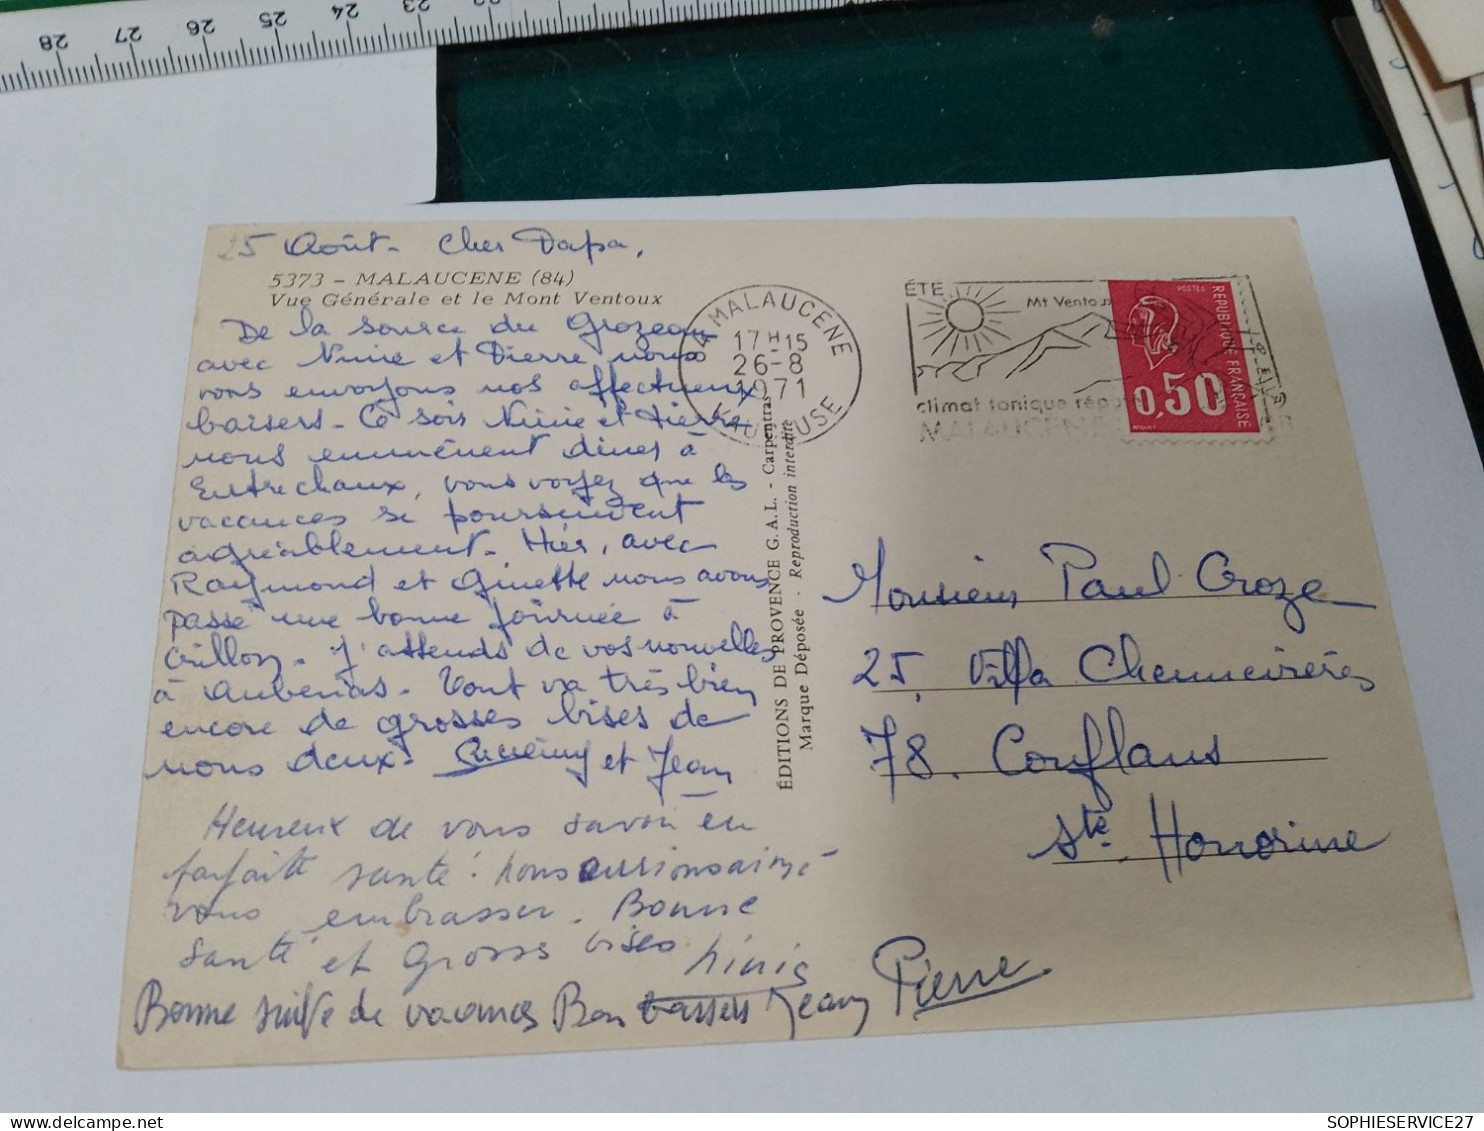 28 27 26 25 24 23 22 21
25 Août - Cher Papa,
5373 - MALAUCENE (84)
Vue Générale et le Mont Ventoux
De la source du Grozeau
avec Ninie et Pierre nous
vous envoyons nos affectueux
baisers. Ce soir Ninie et Pierre
nous emmènent diner à
Entrechaux, vous voyez que les
vacances se poursuivent
agréablement. Hier, avec
Raymond et Ginette nous avons
passé une bonne journée à
Crillon. J'attends de vos nouvelles
à Aubenas. Tout va très bien
encore de grosses bises de
nous deux. et Jean
Heureux de vous savoir en
parfaite santé. Nous aurions aimé
vous embrasser. Bonne
santé et grosses bises
Ninie
Bonne suite de vacances Bons baisers Jean Pierre
ÉDITIONS DE PROVENCE G.A.L. - Carpentras
Marque Déposée - Reproduction interdite
84 MALAUCENE
17H15
26-8
1971
VAUCLUSE
ÉTÉ
Mt Ventoux
climat tonique
MALAUCENE
POSTES
REPUBLIQUE FRANÇAISE
0,50
Monsieur Paul Croze
25, Villa Chennevières
78. Conflans
Ste. Honorine
SOPHIESERVICE27